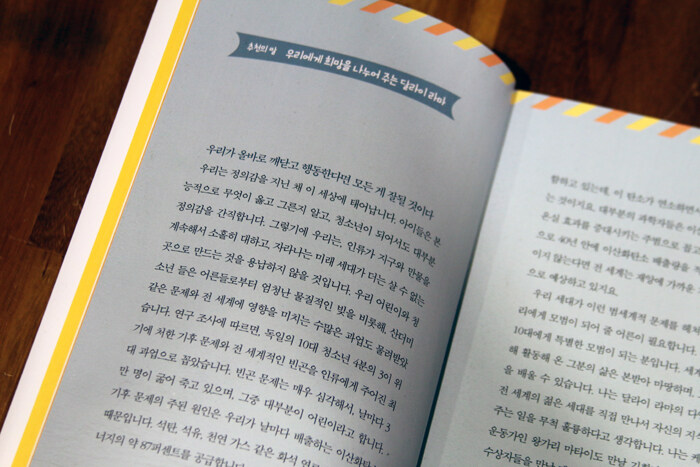 추천의 말 우리에게 희망을 나누어 주는 달라이 라마
우리가 올바로 깨닫고 행동한다면 모든 게 잘될 것이다.
우리는 정의감을 지닌 채 이 세상에 태어납니다. 아이들은 본
능적으로 무엇이 옳고 그른지 알고, 청소년이 되어서도 대부분
정의감을 간직합니다. 그렇기에 우리는, 인류가 지구와 만물을
계속해서 소홀히 대하고, 자라나는 미래 세대가 더는 살 수 없는
곳으로 만드는 것을 용납하지 않을 것입니다. 우리 어린이와 청
소년 들은 어른들로부터 엄청난 물질적인 빚을 비롯해, 산더미
같은 문제와 전 세계에 영향을 미치는 수많은 과업도 물려받았
습니다. 연구 조사에 따르면, 독일의 10대 청소년 4분의 3이 위
기에 처한 기후 문제와 전 세계적인 빈곤을 인류에게 주어진 최
대 과업으로 꼽았습니다. 빈곤 문제는 매우 심각해서, 날마다 3
만 명이 굶어 죽고 있으며, 그중 대부분이 어린이라고 합니다.
기후 문제의 주된 원인은 우리가 날마다 배출하는 이산화탄
때문입니다. 석탄, 석유, 천연 가스 같은 화석 연료
너지의 약 87퍼센트를 공급합니다.
함하고 있는데, 이 탄소가 연소하면
는 것이지요. 대부분의 과학자들은 이산
온실 효과를 증대시키는 주범으로 꼽고
으로 40년 안에 이산화탄소 배출량을
이지 않는다면 전 세계는 재앙에 가까운
으로 예상하고 있지요.
우리 세대가 이런 범세계적 문제를 해
리에게 모범이 되어 줄 어른이 필요합니다.
10대에게 특별한 모범이 되는 분입니다. 세계
해 활동해 온 그분의 삶은 본받아 마땅하며,
을 배울 수 있습니다. 나는 달라이 라마의 다
전 세계의 젊은 세대를 직접 만나서 자신의 지식
주는 일을 무척 훌륭하다고 생각합니다. 나는
운동가인 왕가리 마타이도 만난
수상자들을 만난